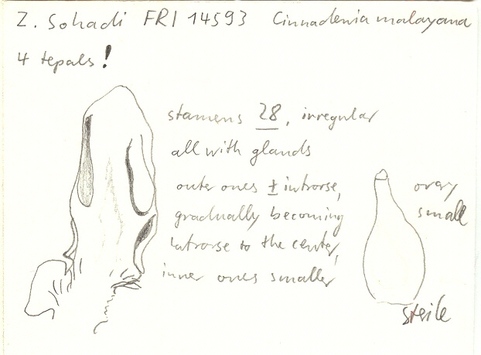 Z. Sohadi FRI 14593 Cinnadenia malayana
4 tepals!
stamens 28, irregular
all with glands
outer ones ± introrse,
gradually becoming
latrorse to the center,
inner ones smaller
ovary
small
sterile